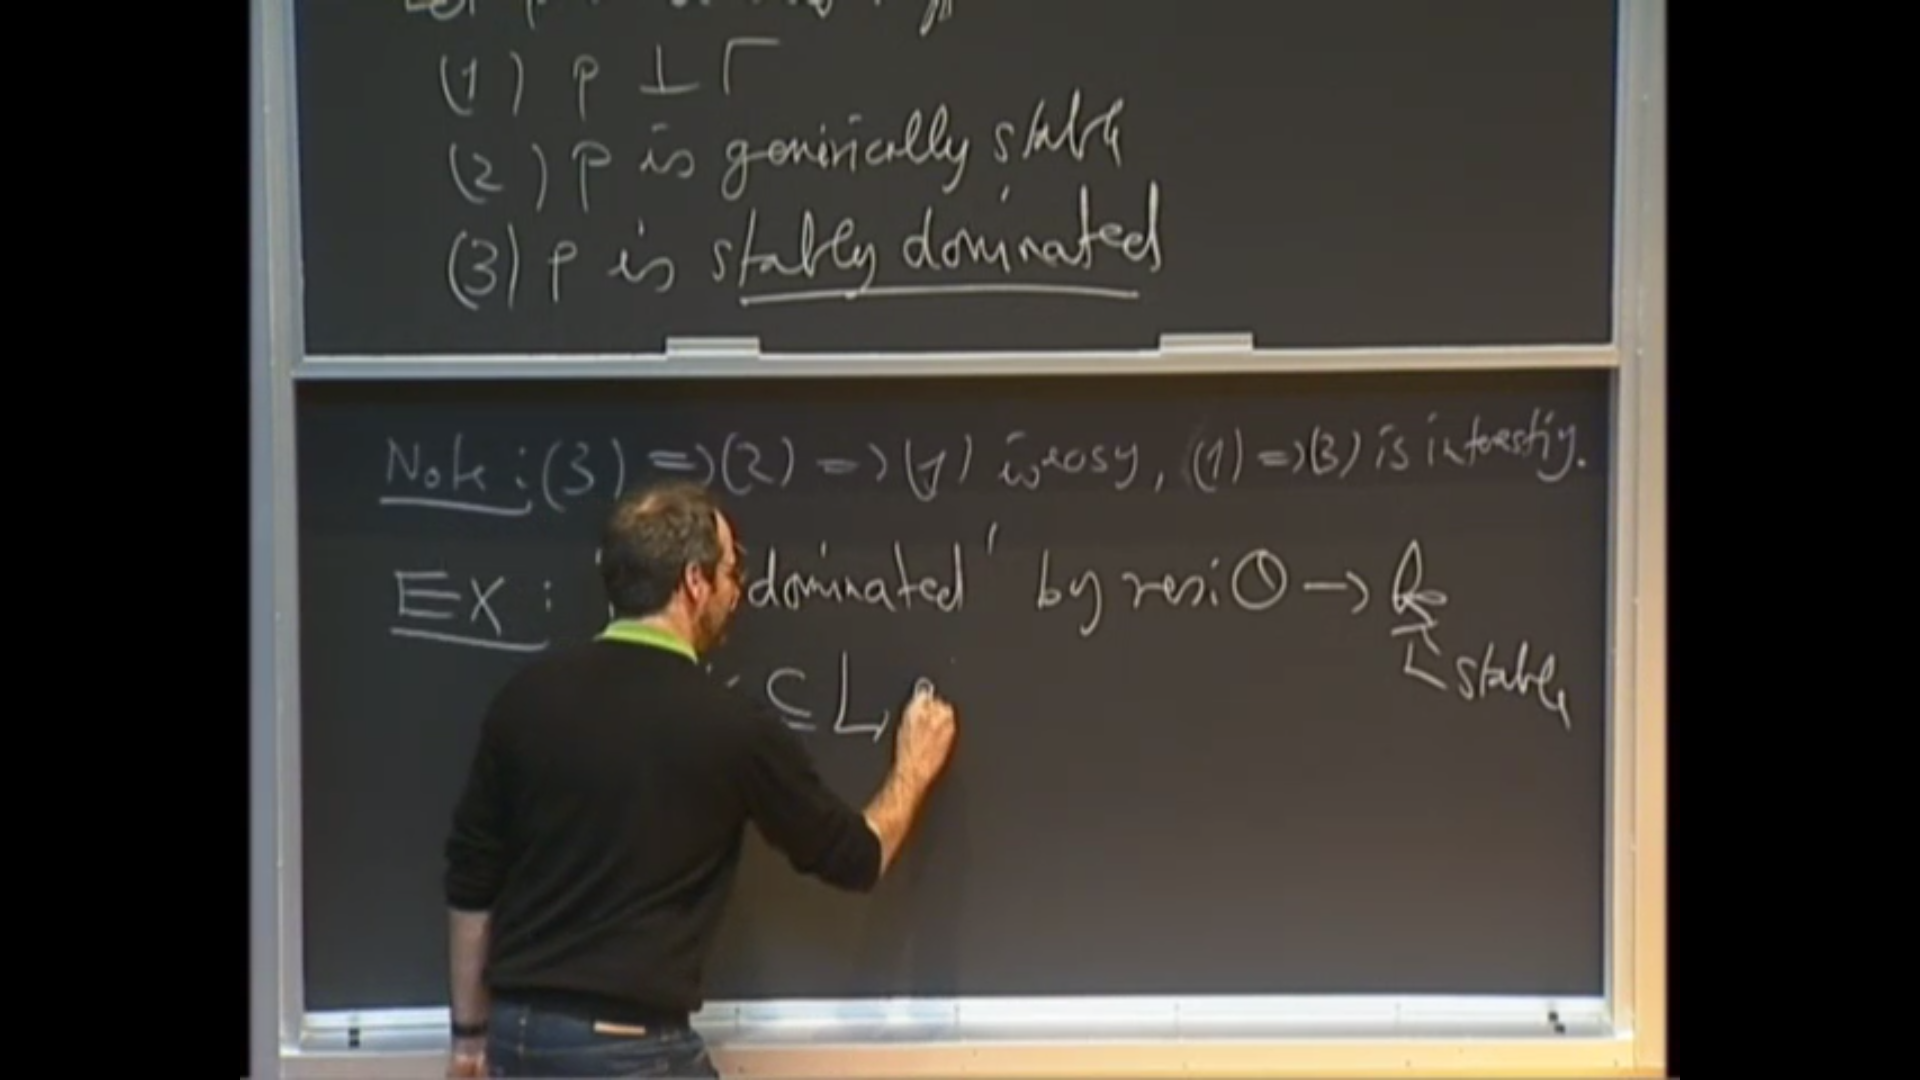 (1) p ⊥ Γ
(2) p is generically stable
(3) p is stably dominated
Note: (3) => (2) => (1) is easy, (1) => (3) is interesting.
Ex: dominated" by res: O → k
⊆ L,
stable